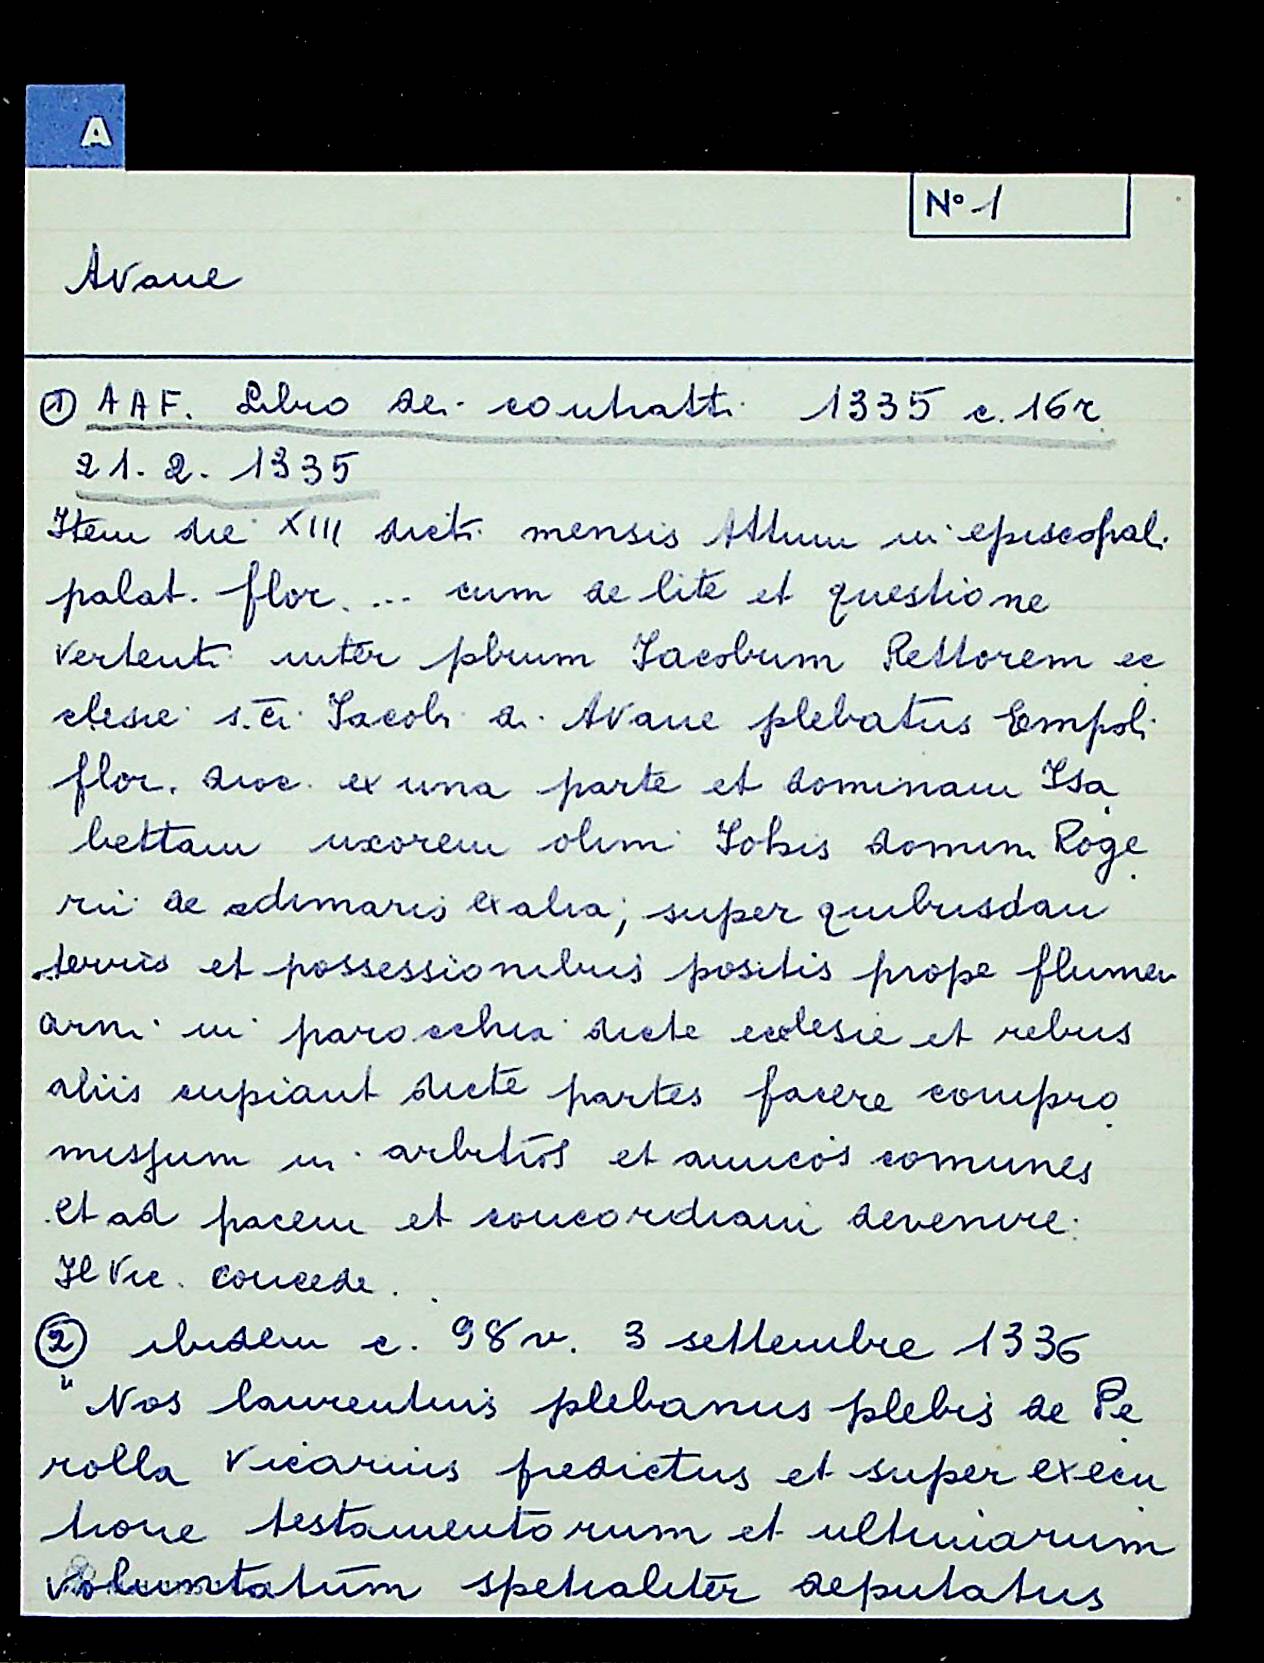 A
N° 1
Avane
① A A F. Libro dei contratti 1335 c. 16r
21. 2. 1335
Item die XIII dicti mensis Attum in episcopali
palat. flor. ... cum de lite et questione
vertenti inter pbrum Iacobum Rettorem ec
clesie s.ci Iacobi di Avane plebatus Empoli
flor. dioc. ex una parte et dominam Isa
bettam uxorem olim Iohis domini Roge
rii de Adimaris ex alia; super quibusdam
terris et possessionibus positis prope flumen
arni in parocchia dicte ecclesie et rebus
aliis cupiant dicte partes facere compro
missum in arbitros et amicos comunes
et ad pacem et concordiam devenire:
Il Vic. concede.
② ibidem c. 98 v. 3 settembre 1336
"Nos laurentius plebanus plebis de Pe
rolla Vicarius predictus et super execu
tione testamentorum et ultimarum
voluntatum spetialiter deputatus